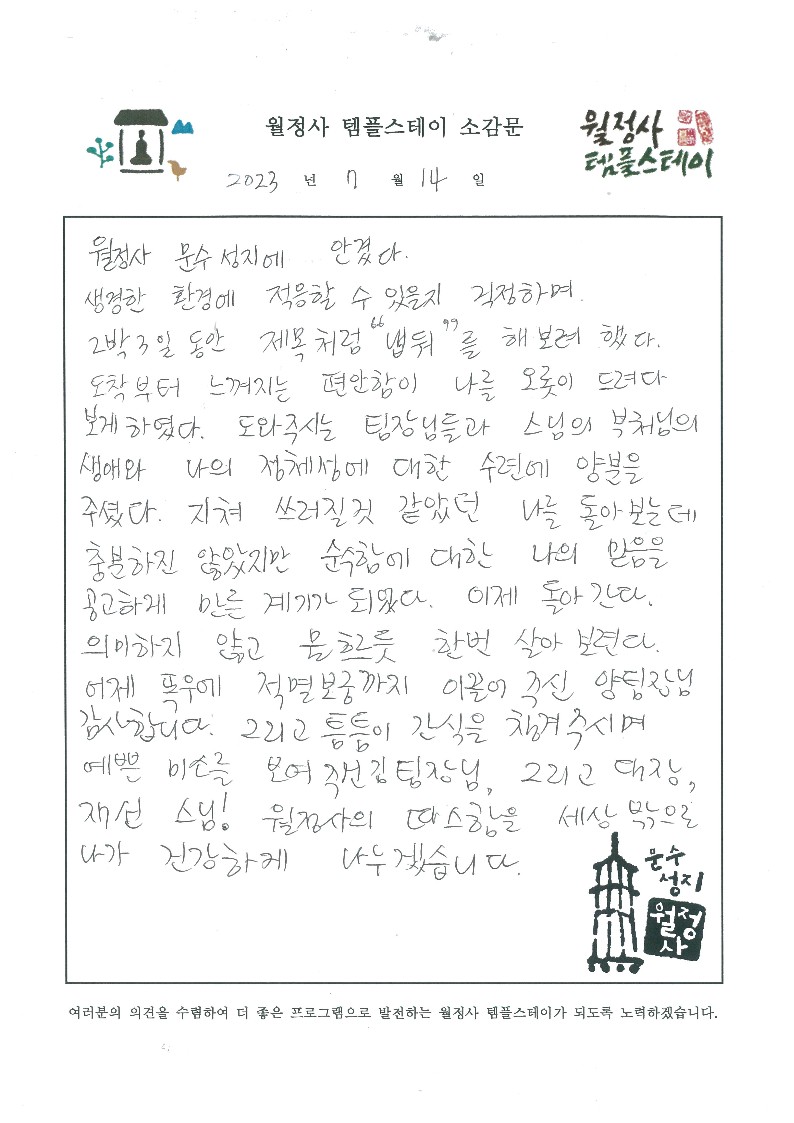 월정사 템플스테이 소감문
월정사
템플스테이
2023 년 7 월 14 일
월정사 문수 성지에 안겼다.
생경한 환경에 적응할 수 있을지 걱정하며.
2박 3일 동안 제목처럼 "냅둬"를 해 보려 했다.
도착부터 느껴지는 편안함이 나를 오롯이 드려다
보게 하였다. 도와주시는 팀장님들과 스님의 부처님의
생애와 나의 정체성에 대한 수련에 양분을
주셨다. 지쳐 쓰러질것 같았던 나를 돌아보는데
충분하진 않았지만 순수함에 대한 나의 믿음을
공고하게 만든 계기가 되었다. 이제 돌아 간다.
의미하지 않고 물 흐르듯 한번 살아 보련다.
어제 폭우에 적멸보궁까지 이끌어 주신 양팀장님
감사합니다. 그리고 틈틈이 간식을 챙겨주시며
예쁜 미소를 보여 주신 김팀장님, 그리고 대장,
재선 스님! 월정사의 따스함을 세상 밖으로
나가 건강하게 나누겠습니다.
문수
성지
월정
사
여러분의 의견을 수렴하여 더 좋은 프로그램으로 발전하는 월정사 템플스테이가 되도록 노력하겠습니다.